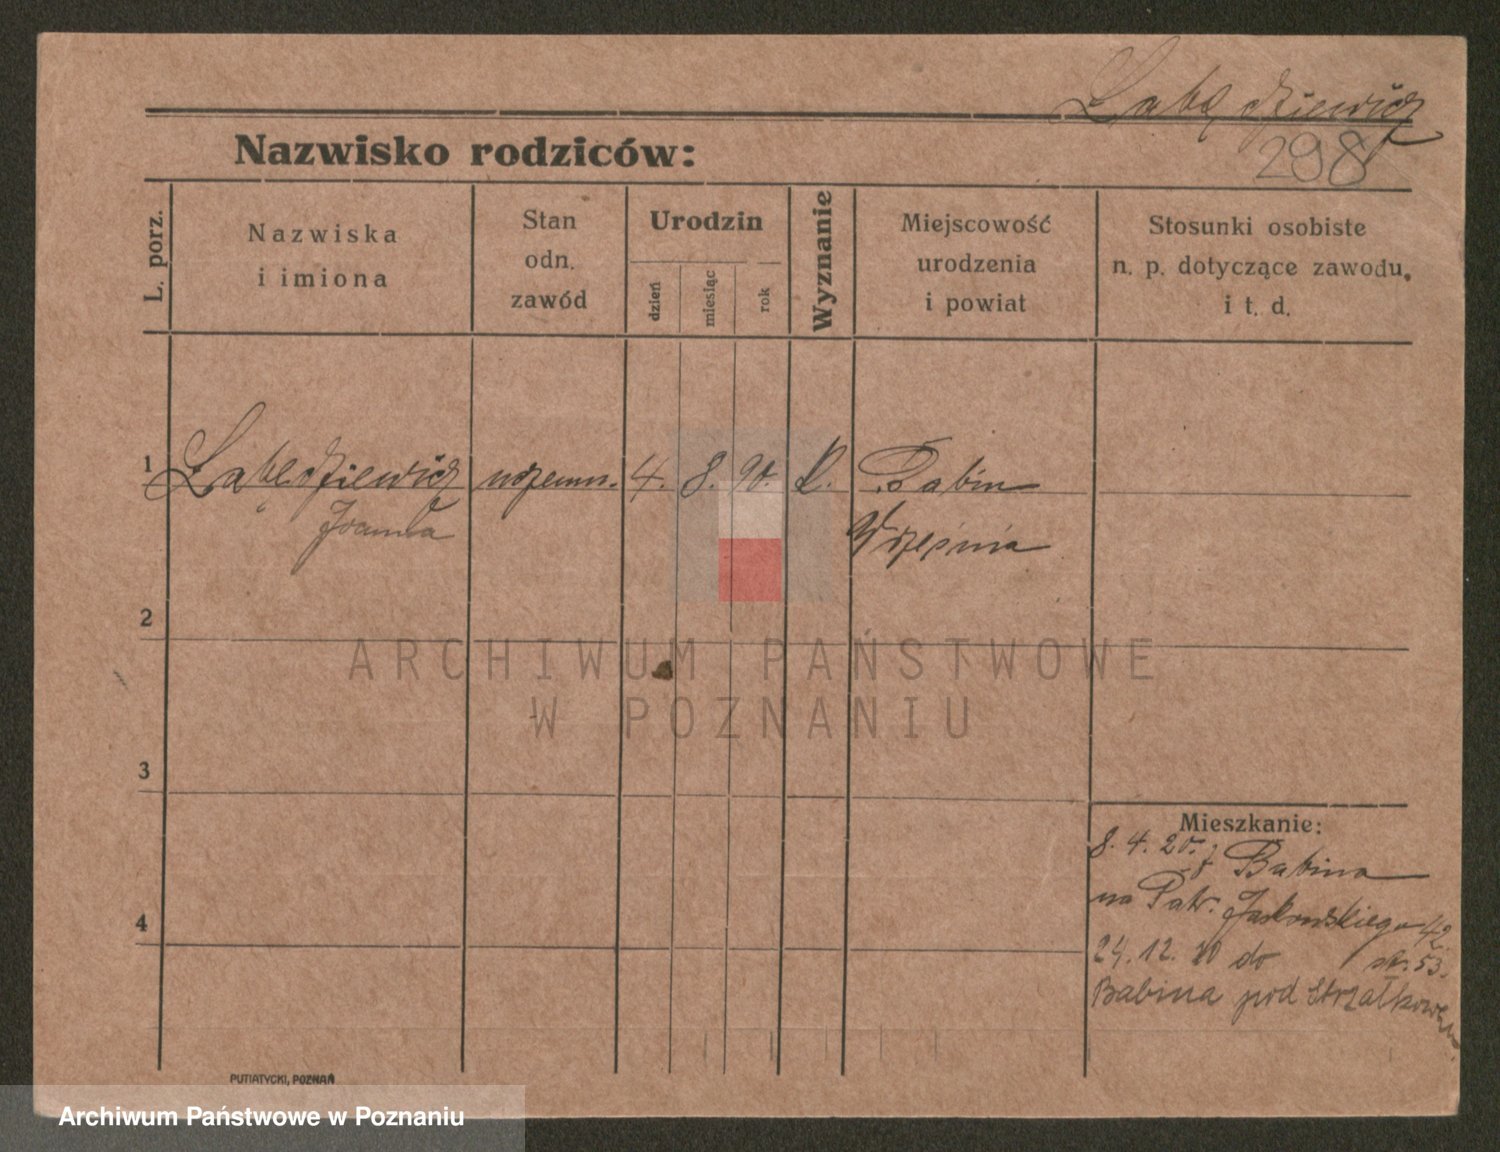 Łabędziewicz
Nazwisko rodziców:
298
L. porz.
Nazwiska
i imiona
Stan
odn.
zawód
Urodzin
dzień
miesiąc
rok
Wyznanie
Miejscowość
urodzenia
i powiat
Stosunki osobiste
n. p. dotyczące zawodu,
i t. d.
1 Łabędziewicz 4. 8. 90. Babin
Joanna Września
2
ARCHIWUM PAŃSTWOWE
W POZNANIU
3
Mieszkanie:
8. 4. 20. z Babina
na Patr. Jackowskiego 42
4
24. 12. 20 do st. 53.
Babina pod Strzałkowem.
PUTIATYCKI, POZNAŃ
Archiwum Państwowe w Poznaniu